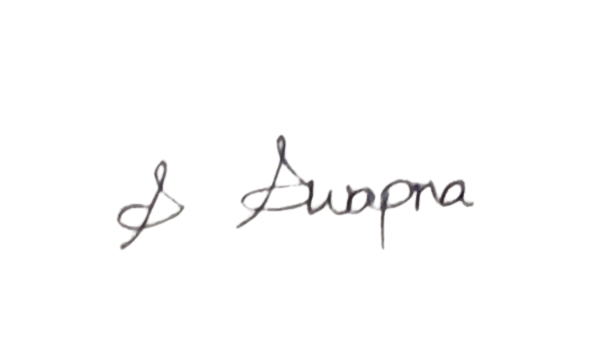 S Swapna